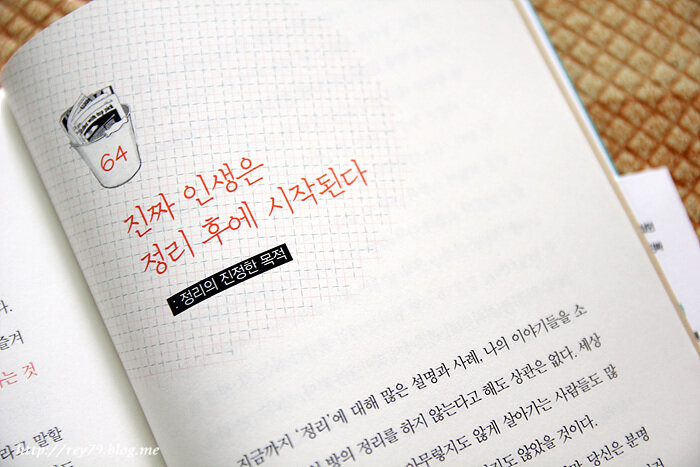 64
진짜 인생은
정리 후에 시작된다
: 정리의 진정한 목적
지금까지 '정리'에 대해 많은 설명과 사례, 나의 이야기들을 소
방의 정리를 하지 않는다고 해도 상관은 없다. 세상
아무렇지도 않게 살아가는 사람들도 많
도 않았을 것이다.
당신은 분명
다.
즐겨
는 것
라고 말할
http://rey79.blog.me